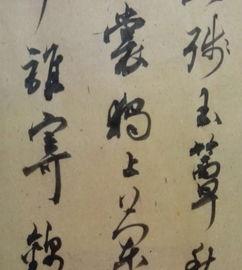 殘玉簟秋
裳獨上蘭
誰寄錦